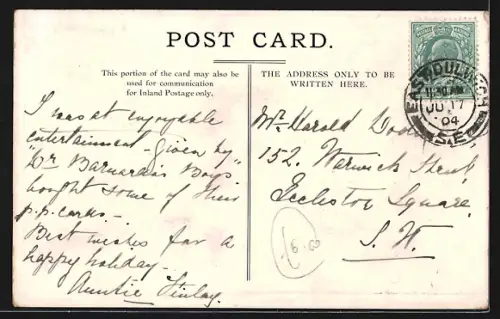 POST CARD.
This portion of the card may also be
used for communication
for Inland Postage only.
THE ADDRESS ONLY TO BE
WRITTEN HERE.
EAST DULWICH
JU 17
04
S.E
I was at enjoyable
entertainment - given by
"Dr Barnardo's Boys"
bought some of their
p.p. cards. -
Best wishes for a
happy holiday -
Auntie Finlay.
Mr. Harold
152, Warwick Street,
Eccleston Square,
S. W.